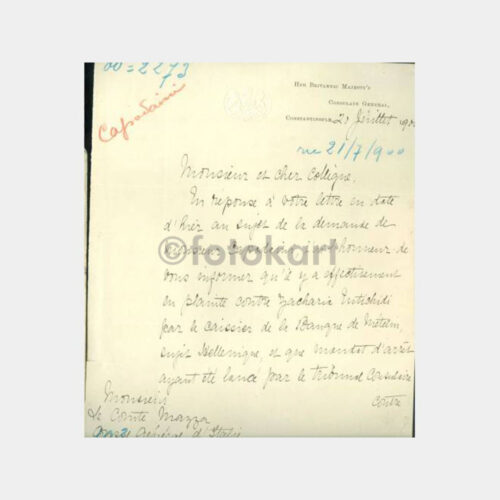 00=2273
Capadaini
HER BRITANNIC MAJESTY'S
CONSULATE GENERAL,
CONSTANTINOPLE 20 Juillet 1900
rec 21/7/900
Monsieur et cher Collègue,
En réponse à votre lettre en date
d'hier au sujet de la demande de
Monsieur j'ai l'honneur de
©fotokart
vous informer qu'il y a effectivement
eu plainte contre Zacharia Eutichidi
par le caissier de la Banque de Métélin,
sujet Hellénique, et que mandat d'arrêt
ayant été lancé par le tribunal Consulaire
contre
Monsieur
Le Comte Mazza
Consul Général d'Italie